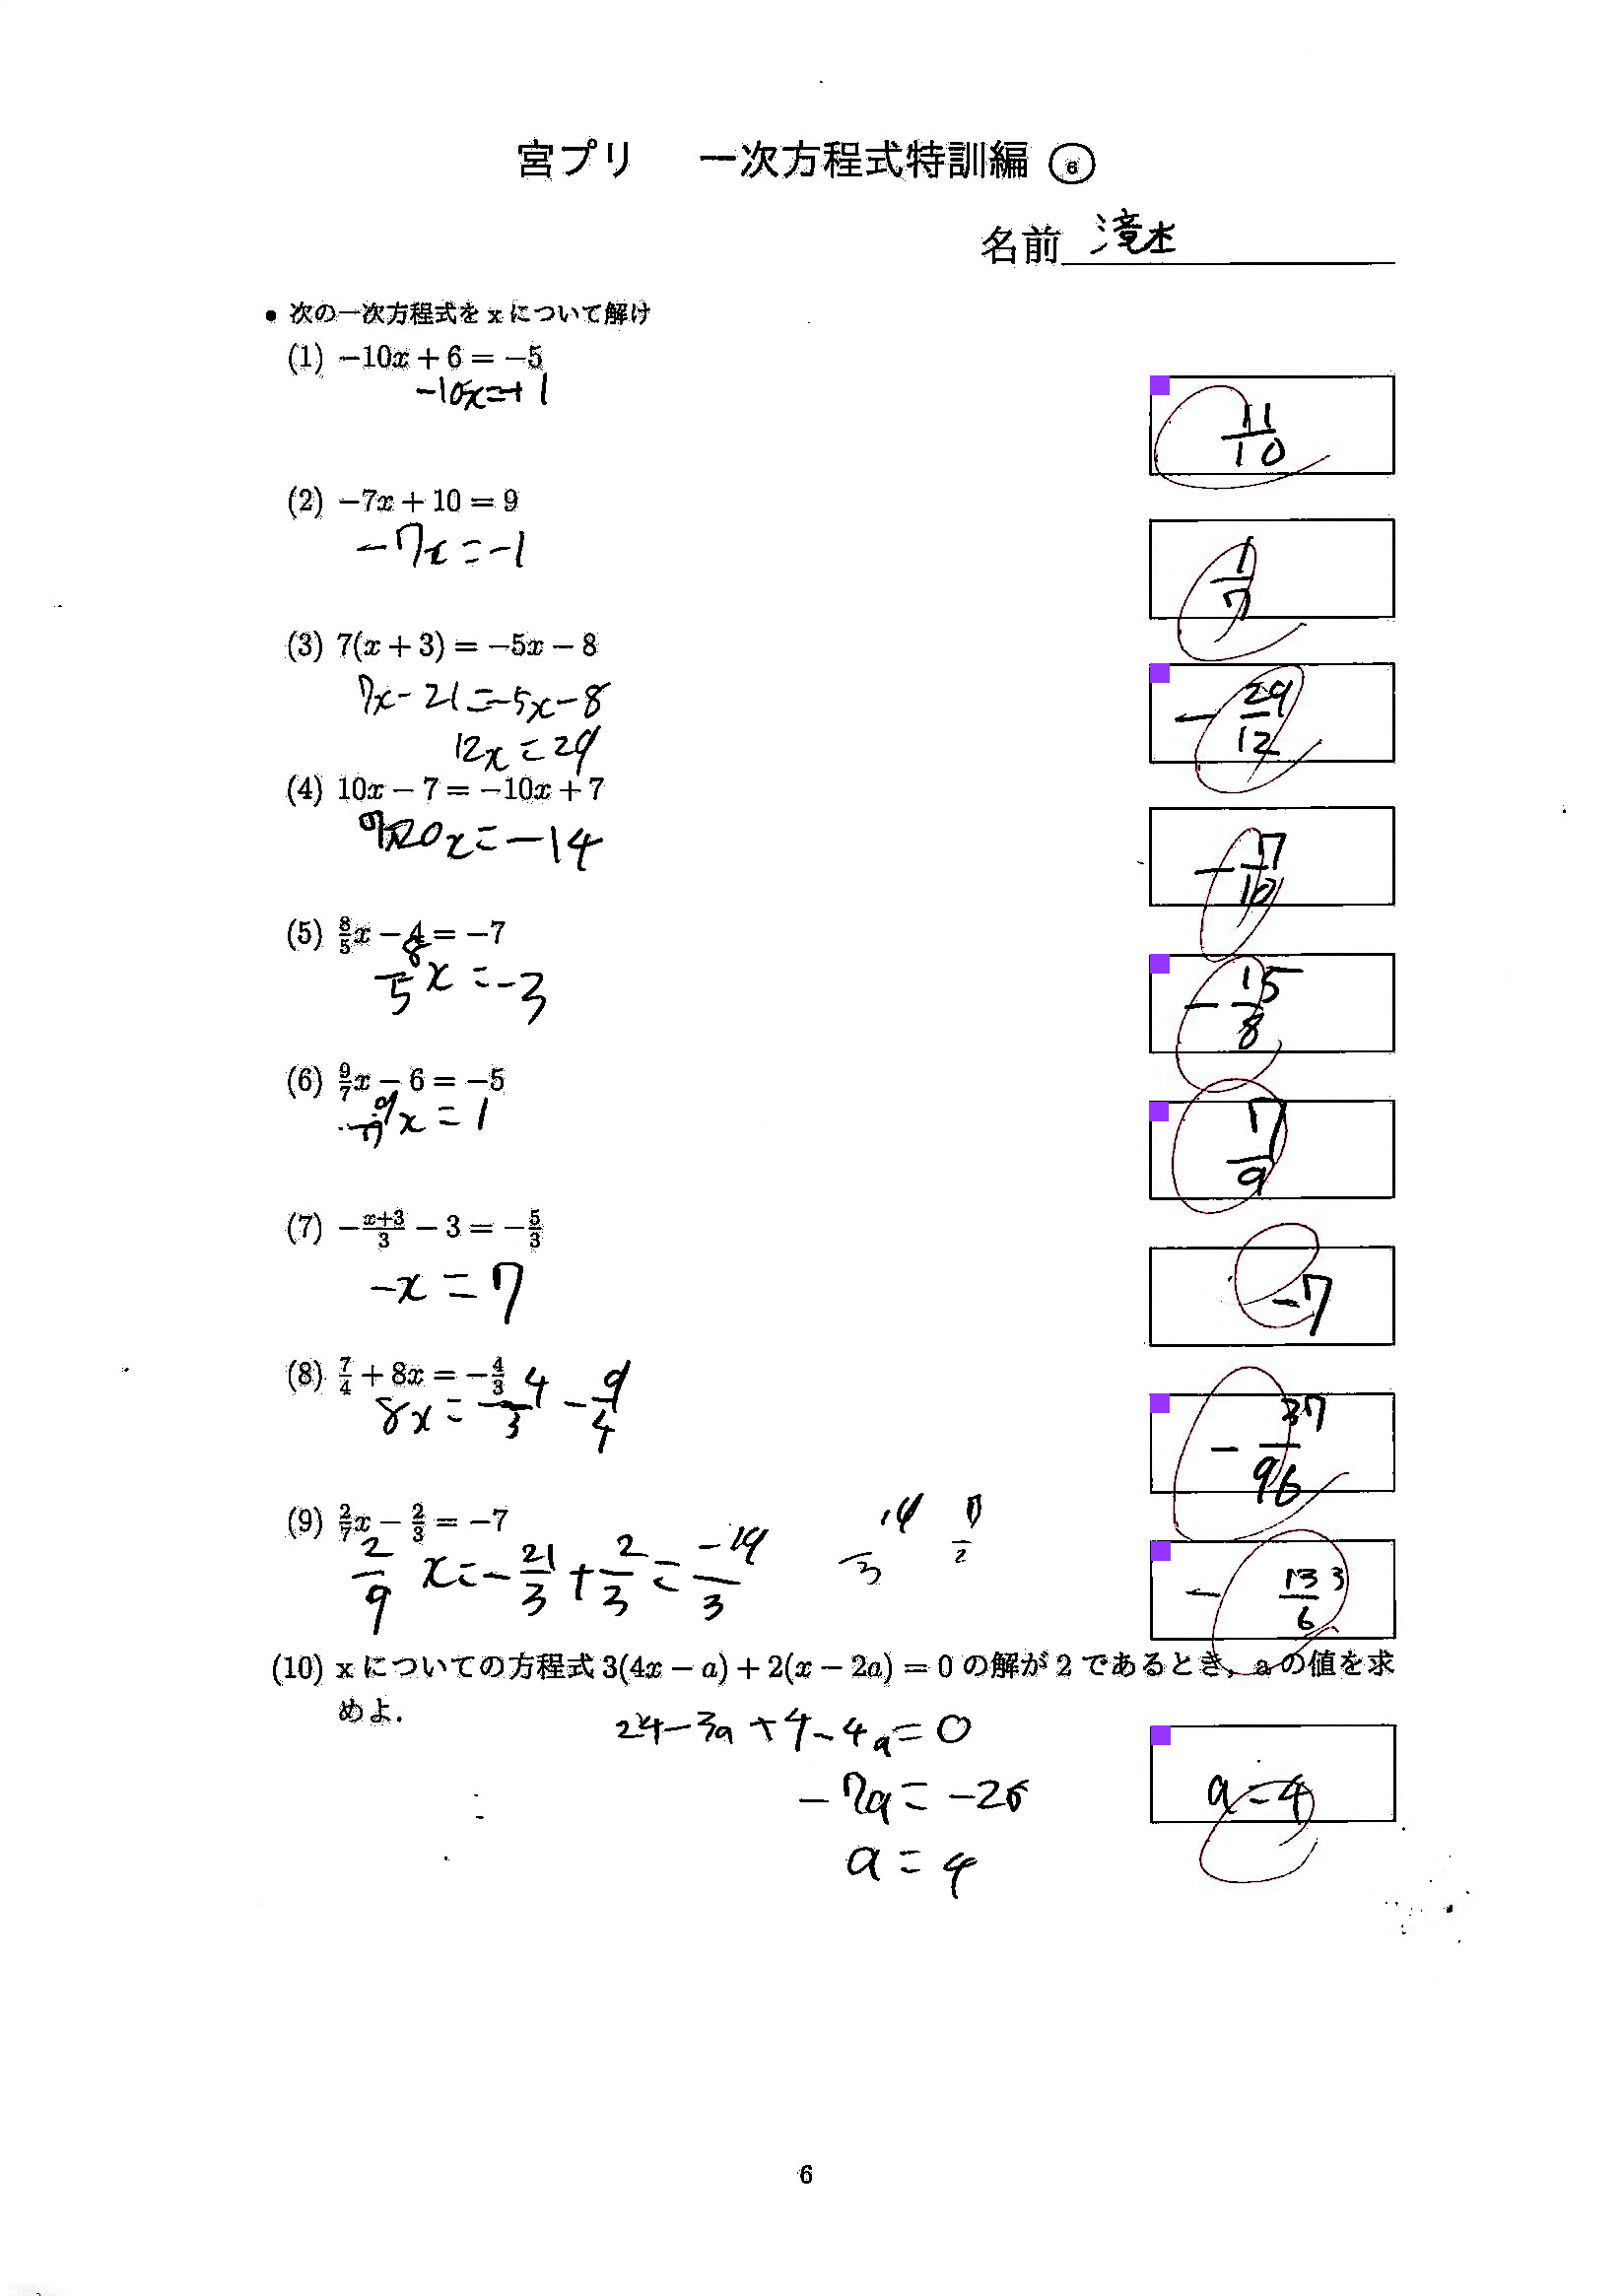 宮プリ 一次方程式特訓編 ⑥
名前
• 次の一次方程式を x について解け
(1) −10x + 6 = −5
−10x=+1
11/10
(2) −7x + 10 = 9
−7x=−1
1/7
(3) 7(x + 3) = −5x − 8
7x−21=−5x−8
12x=29
−29/12
(4) 10x − 7 = −10x + 7
20x=−14
−7/10
(5) 8/5x − 4 = −7
8/5x=−3
−15/8
(6) 9/7x − 6 = −5
9/7x=1
7/9
(7) −(x+3)/3 − 3 = −5/3
−x=7
−7
(8) 7/4 + 8x = −4/3
8x=−4/3−9/4
−37/96
(9) 2/7x − 2/3 = −7
2/9x=−21/3+2/3=−19/3
−133/6
(10) x についての方程式 3(4x − a) + 2(x − 2a) = 0 の解が 2 であるとき, a の値を求
めよ.
24−3a+4−4a=0
−7a=−28
a=4
a=4
6